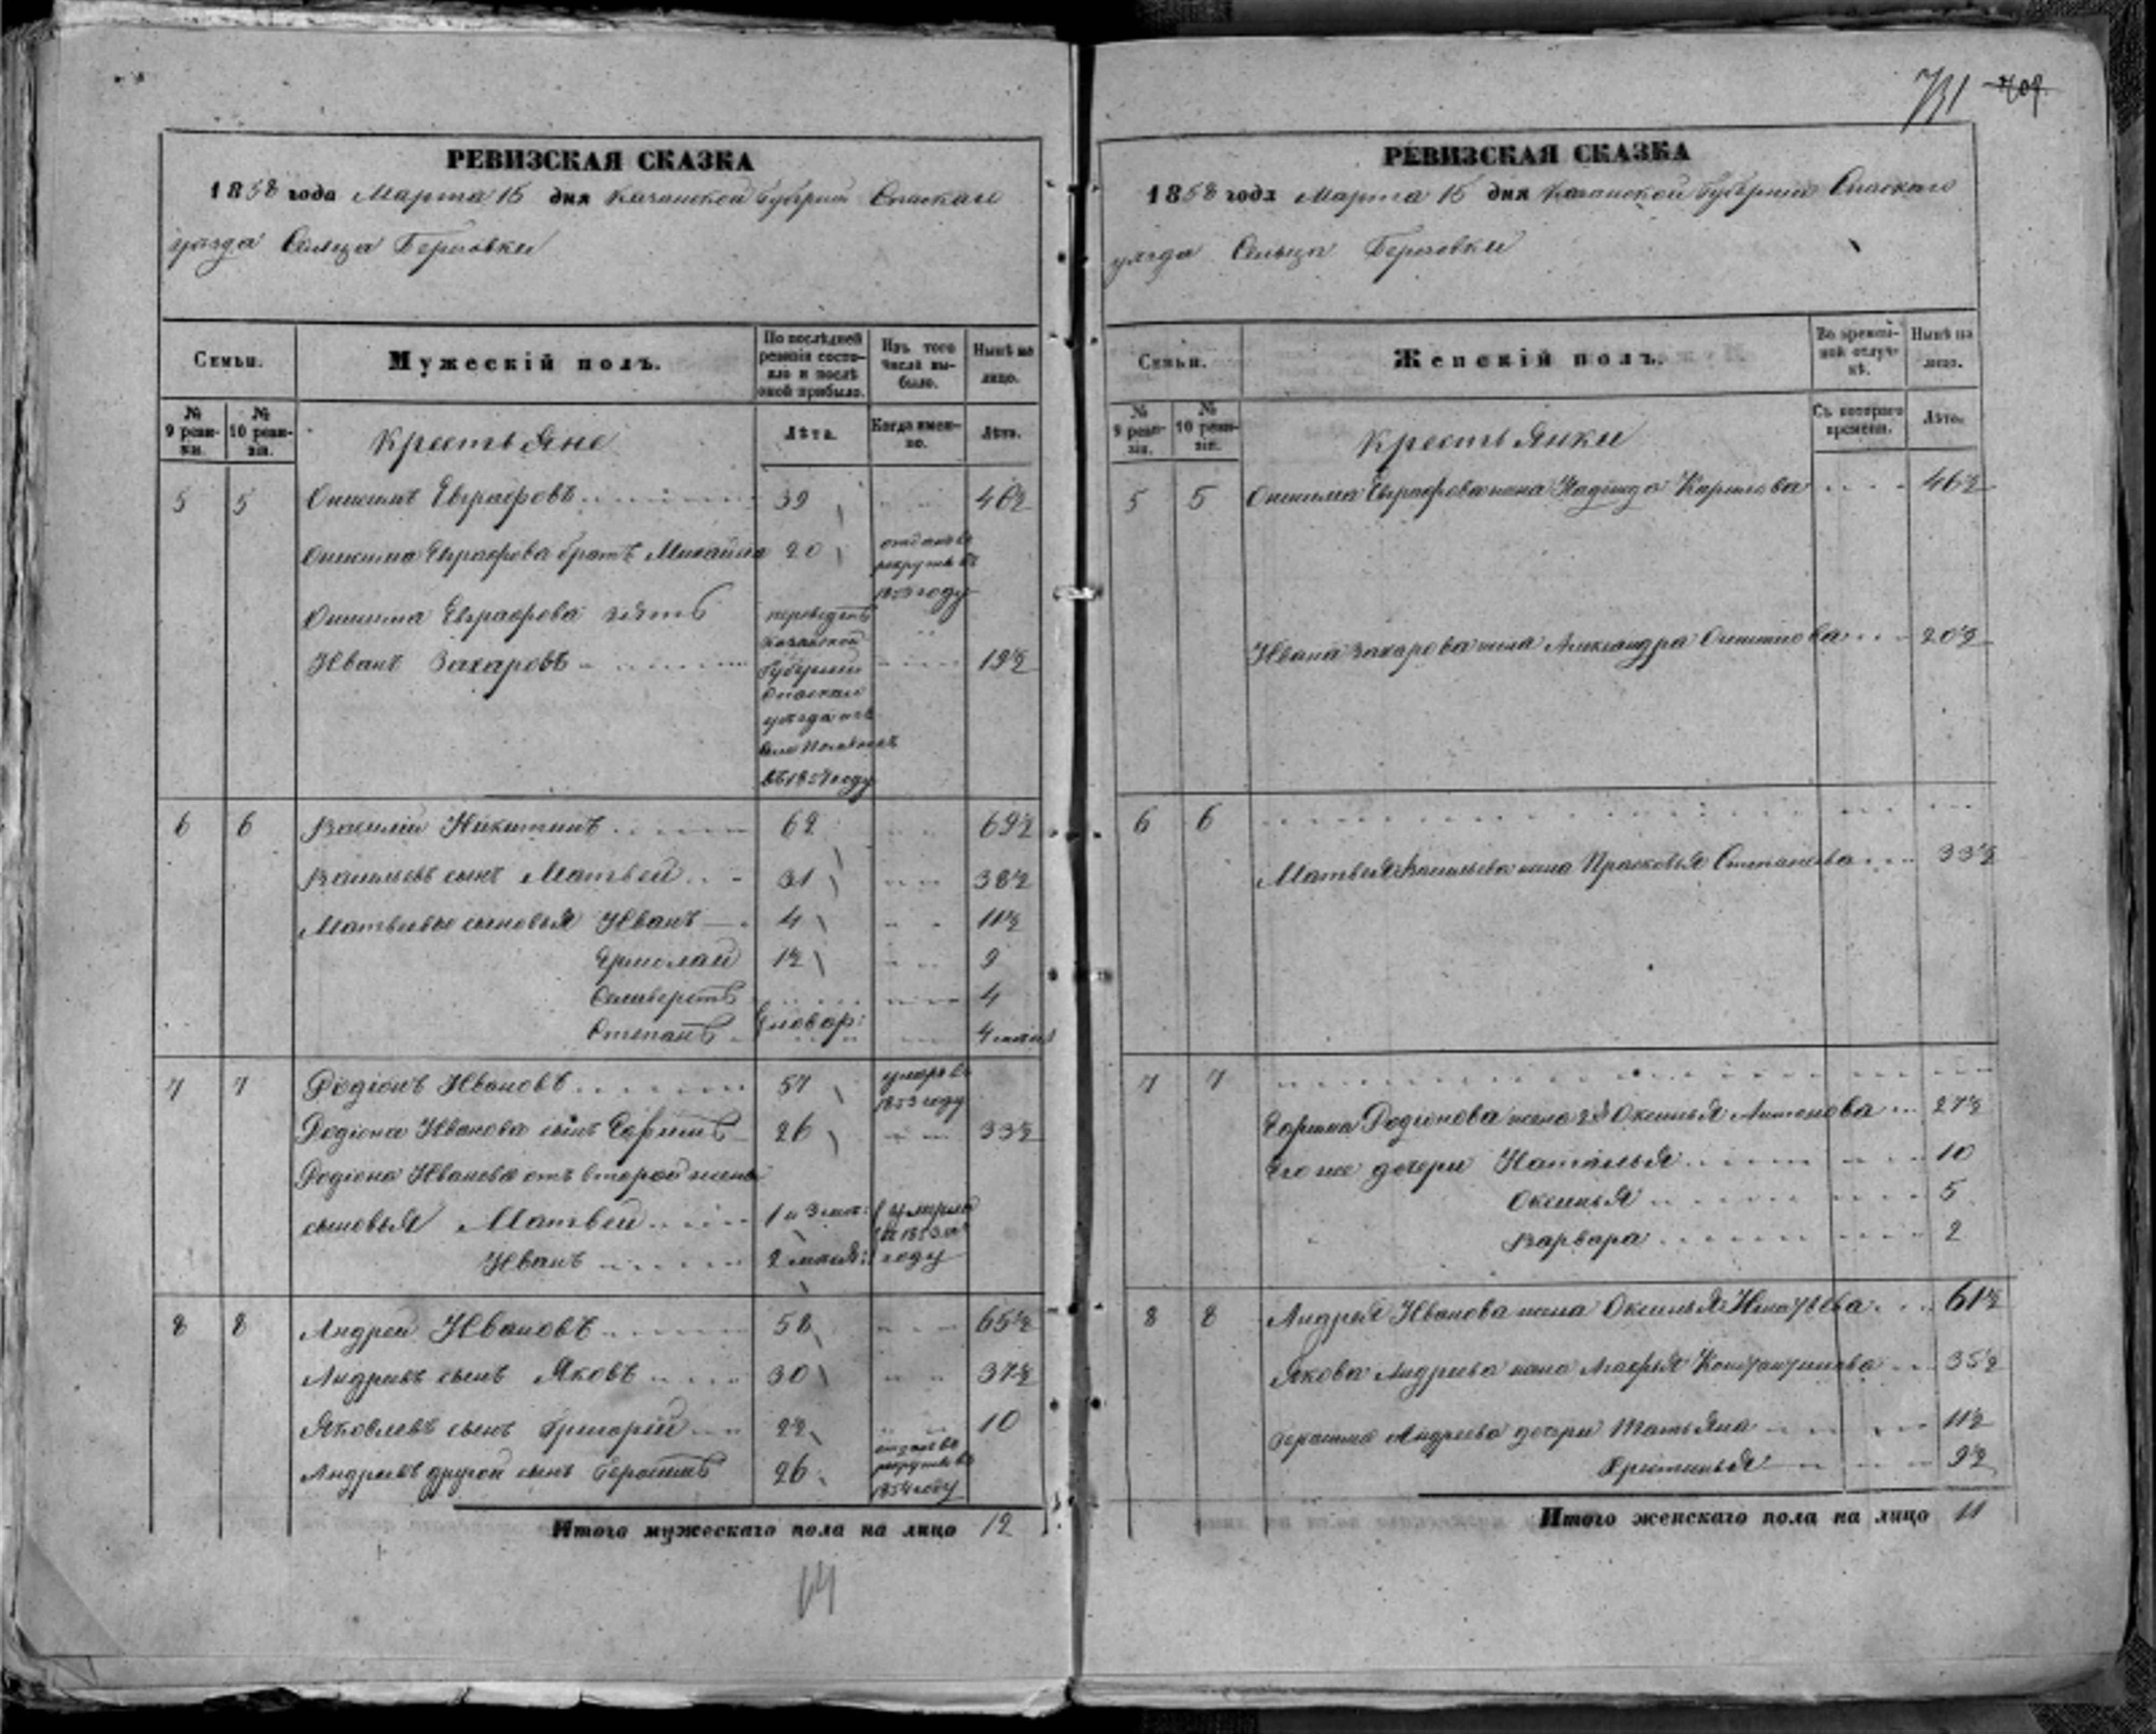 731 709
РЕВИЗСКАЯ СКАЗКА
1858 года Марта 15 дня Казанской Губернiи Спаскаго
уѣзда Сельца Березовки
Семьи.
Мужескiй полъ.
По послѣдней ревизiи состояло и послѣ оной прибыло.
Изъ того числа выбыло.
Нынѣ на лицо.
№ 9 ревизiи.
№ 10 ревизiи.
Крестьяне
Лѣта.
Когда именно.
Лѣта.
5 5 Онисимъ Евграфовъ 39 46½
Онисима Евграфова братъ Михайла 20 отданъ въ рекруты въ 1853 году
Онисима Евграфова зять переведенъ
Иванъ Захаровъ Казанской Губернiи Спаскаго уѣзда изъ села въ 1857 году 19½
6 6 Василiй Никитинъ 62 69½
Васильевъ сынъ Матвей 31 38½
Матвеевы сыновья Иванъ 4 11½
Ермолай 1½ 9
Селиверстъ 4
Степанъ новор: 4
7 7 Родiонъ Ивановъ 57 умеръ въ 1853 году
Родiона Иванова сынъ Ефимъ 26 33½
Родiона Иванова отъ второй жены
сыновья Матвей 1 и 3 мес: умерли въ 1853
Иванъ 2 году
8 8 Андрей Ивановъ 58 65½
Андреевъ сынъ Яковъ 30 37½
Яковлевъ сынъ Григорiй 2½ 10
Андреевъ другой сынъ Герасимъ 26 отданъ въ рекруты въ 1854 году
Итого мужескаго пола на лицо 12
РЕВИЗСКАЯ СКАЗКА
1858 года Марта 15 дня Казанской Губернiи Спаскаго
уѣзда Сельца Березовки
Семьи.
Женскiй полъ.
Во временной отлучкѣ.
Нынѣ на лицо.
№ 9 ревизiи.
№ 10 ревизiи.
Крестьянки
Съ котораго времени.
Лѣта.
5 5 Онисима Евграфова жена Надежда Карпова 46½
Ивана Захарова жена Александра Онисимова 20½
6 6
Матвея Васильева жена Прасковья Степанова 33½
7 7
Ефима Родiонова жена 2я Оксинья Антонова 27½
Его же дочери Наталья 10
Оксинья 5
Варвара 2
8 8 Андрея Иванова жена Оксинья 61½
Якова Андреева жена Агафья Константинова 35½
Герасима Андреева дочери Татьяна 11½
Христинья 9½
Итого женскаго пола на лицо 11